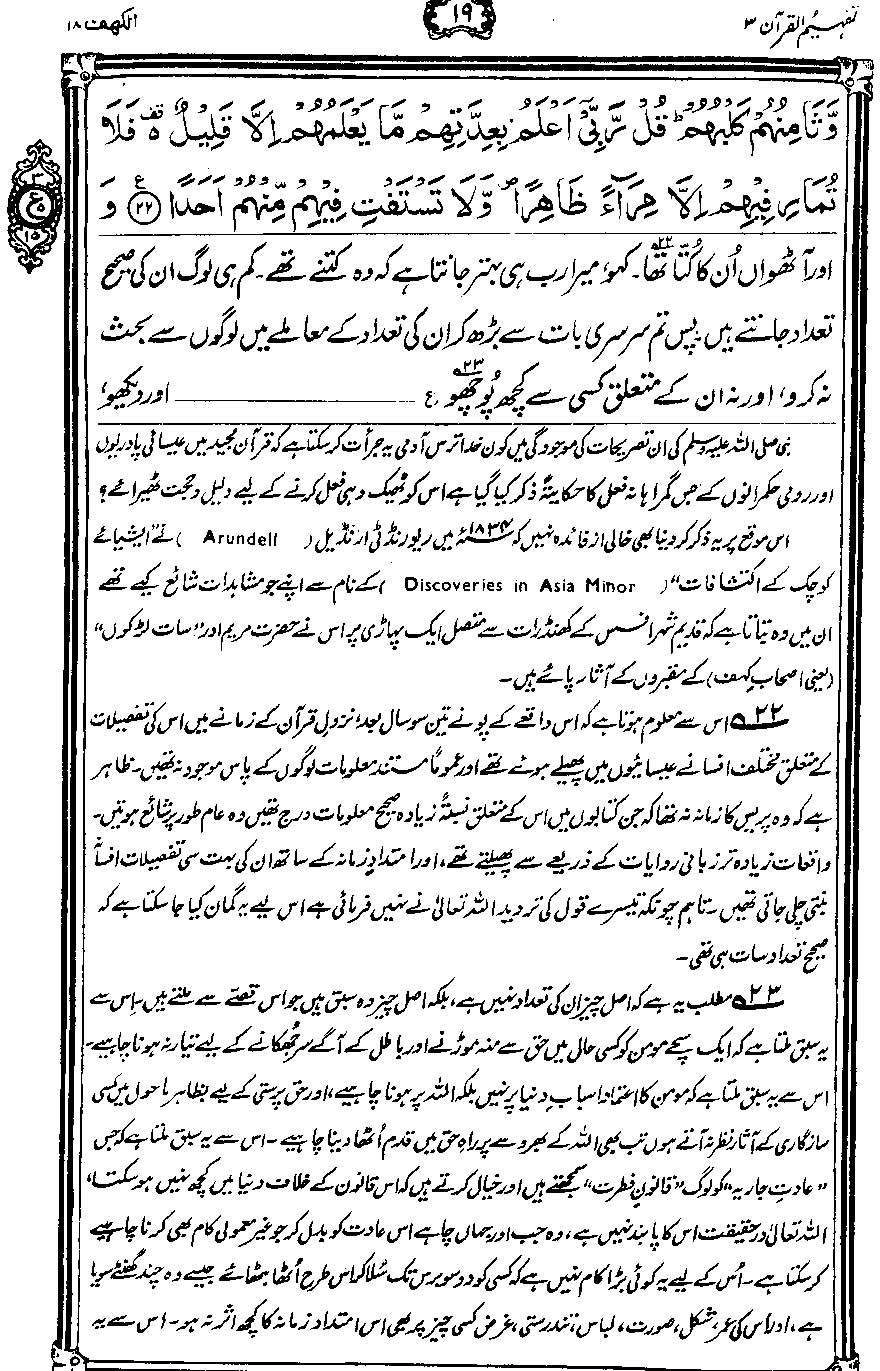 تفہیم القرآن ۳
۱۹
الکہف ۱۸
وَّثَامِنُهُمْ كَلْبُهُمْ ؕ قُلْ رَّبِّیْۤ اَعْلَمُ بِعِدَّتِهِمْ مَّا یَعْلَمُهُمْ اِلَّا قَلِیْلٌ ۫۬ فَلَا
تُمَارِ فِیْهِمْ اِلَّا مِرَآءً ظَاهِرًا ۪ وَّلَا تَسْتَفْتِ فِیْهِمْ مِّنْهُمْ اَحَدًا ﴿۲۲﴾ ع وَ
۳
ع
۵
۱۵
اور آٹھواں اُن کا کُتّا تھا۲۲؎۔ کہو، میرا رب ہی بہتر جانتا ہے کہ وہ کتنے تھے۔ کم ہی لوگ ان کی صحیح
تعداد جانتے ہیں۔ پس تم سرسری بات سے بڑھ کر ان کی تعداد کے معاملے میں لوگوں سے بحث
نہ کرو، اور نہ ان کے متعلق کسی سے کچھ پُوچھو۲۳؎ ع ــــــــــــــ اور دیکھو،
نبی صلی اللہ علیہ وسلم کی ان تصریحات کی موجودگی میں کون خدا ترس آدمی یہ جرأت کر سکتا ہے کہ قرآن مجید میں عیسائی پادریوں
اور رومی حکمرانوں کے جس گمراہانہ فعل کا حکایتہً ذکر کیا گیا ہے اس کو ٹھیک وہی فعل کرنے کے لیے دلیل و حجت ٹھیرائے؟
اس موقع پر یہ ذکر کر دینا بھی خالی از فائدہ نہیں کہ ۱۸۳۴؁ء میں ریورنڈ ٹی ارنڈیل (Arundell) نے "ایشیائے
کوچک کے اکتشافات" (Discoveries in Asia Minor) کے نام سے اپنے جو مشاہدات شائع کیے تھے
ان میں وہ بتاتا ہے کہ قدیم شہر افسس کے کھنڈرات سے متصل ایک پہاڑی پر اس نے حضرت مریم اور "سات لڑکوں"
(یعنی اصحاب کہف) کے مقبروں کے آثار پائے ہیں۔
۲۲؎ اس سے معلوم ہوتا ہے کہ اس واقعے کے پونے تین سو سال بعد، نزولِ قرآن کے زمانے میں اس کی تفصیلات
کے متعلق مختلف افسانے عیسائیوں میں پھیلے ہوئے تھے اور عموماً مستند معلومات لوگوں کے پاس موجود نہ تھیں۔ ظاہر
ہے کہ وہ پریس کا زمانہ نہ تھا کہ جن کتابوں میں اس کے متعلق نسبتہً زیادہ صحیح معلومات درج تھیں وہ عام طور پر شائع ہوتیں۔
واقعات زیادہ تر زبانی روایات کے ذریعے سے پھیلتے تھے، اور امتدادِ زمانہ کے ساتھ ان کی بہت سی تفصیلات افسانہ
بنتی چلی جاتی تھیں۔ تاہم چونکہ تیسرے قول کی تردید اللہ تعالیٰ نے نہیں فرمائی ہے اس لیے یہ گمان کیا جا سکتا ہے کہ
صحیح تعداد سات ہی تھی۔
۲۳؎ مطلب یہ ہے کہ اصل چیز ان کی تعداد نہیں ہے، بلکہ اصل چیز وہ سبق ہیں جو اس قصے سے ملتے ہیں۔ اس سے
یہ سبق ملتا ہے کہ ایک سچے مومن کو کسی حال میں حق سے منہ موڑنے اور باطل کے آگے سر جُھکانے کے لیے تیار نہ ہونا چاہیے۔
اس سے یہ سبق ملتا ہے کہ مومن کا اعتماد اسبابِ دنیا پر نہیں بلکہ اللہ پر ہونا چاہیے، اور حق پرستی کے لیے بظاہر ماحول میں کسی
سازگاری کے آثار نظر نہ آتے ہوں تب بھی اللہ کے بھروسے پر راہِ حق میں قدم اُٹھا دینا چاہیے۔ اس سے یہ سبق ملتا ہے کہ جس
"عادتِ جاریہ" کو لوگ "قانونِ فطرت" سمجھتے ہیں اور خیال کرتے ہیں کہ اس قانون کے خلاف دنیا میں کچھ نہیں ہو سکتا،
اللہ تعالیٰ درحقیقت اس کا پابند نہیں ہے، وہ جب اور جہاں چاہے اس عادت کو بدل کر جو غیر معمولی کام بھی کرنا چاہے
کر سکتا ہے۔ اُس کے لیے یہ کوئی بڑا کام نہیں ہے کہ کسی کو دو سو برس تک سُلا کر اس طرح اُٹھا بٹھائے جیسے وہ چند گھنٹے سویا
ہے، اور اس کی عمر، شکل، صورت، لباس، تندرستی، غرض کسی چیز پر بھی اس امتدادِ زمانہ کا کچھ اثر نہ ہو۔ اس سے یہ